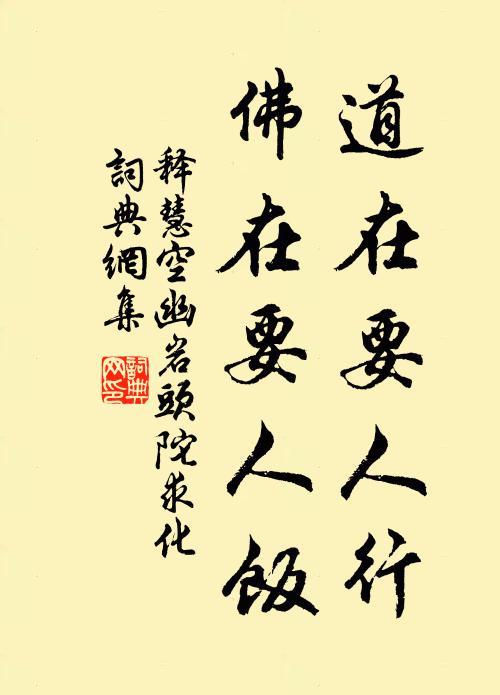 道在要人行
佛在要人飯
释慧空幽岩頭陀求化
詞典網集
詞典
网印